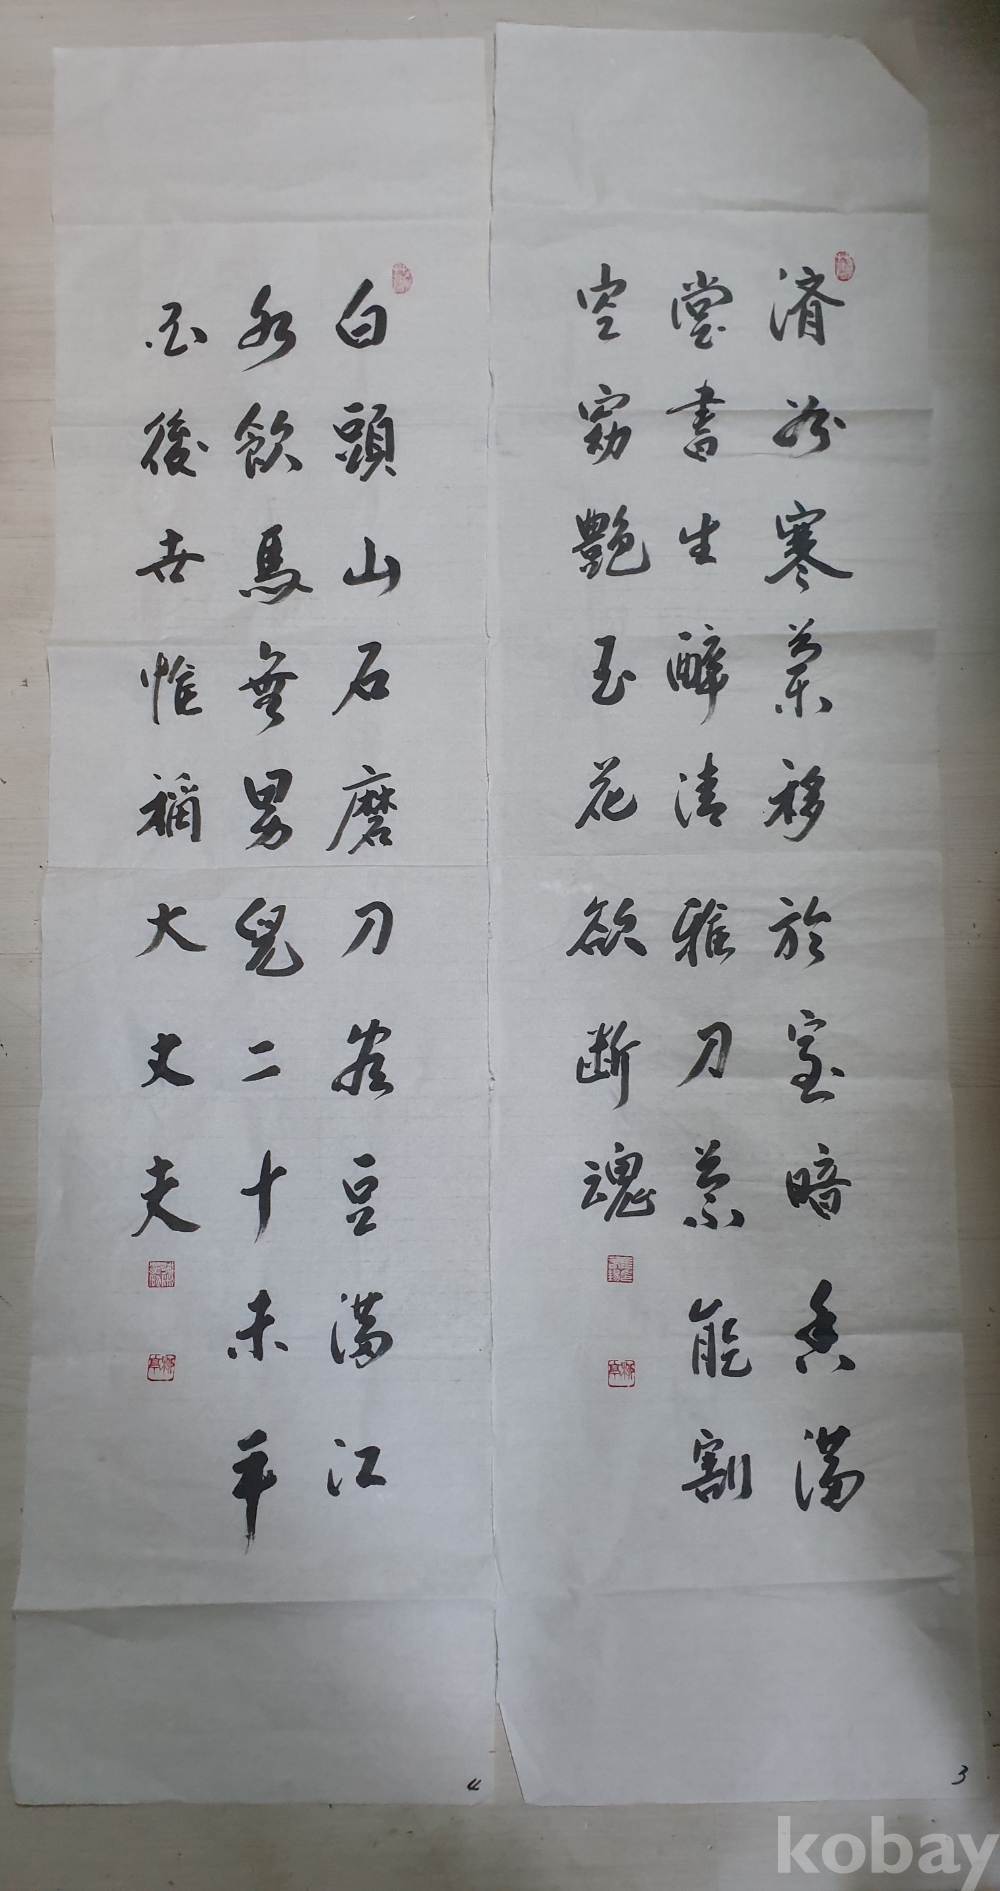 濟州寒蘭移於室暗香滿
堂書生醉清雅刀葉能割
空窈艶玉花欲斷魂
3
白頭山石磨刀盡豆滿江
水飲馬無男兒二十未平
國後世惟稱大丈夫
4
kobay